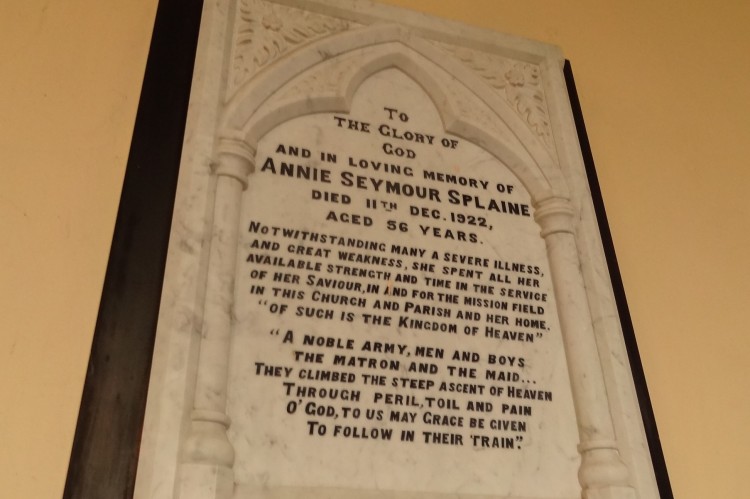 To
The Glory of
God
and in loving memory of
Annie Seymour Splaine
died 11th Dec. 1922,
aged 56 years.
Notwithstanding many a severe illness,
and great weakness, she spent all her
available strength and time in the service
of her Saviour, in and for the mission field
in this Church and Parish and her home.
"Of such is the Kingdom of Heaven"
"A noble army, men and boys
the matron and the maid...
They climbed the steep ascent of Heaven
Through peril, toil and pain
O' God, to us may Grace be given
To follow in their train".